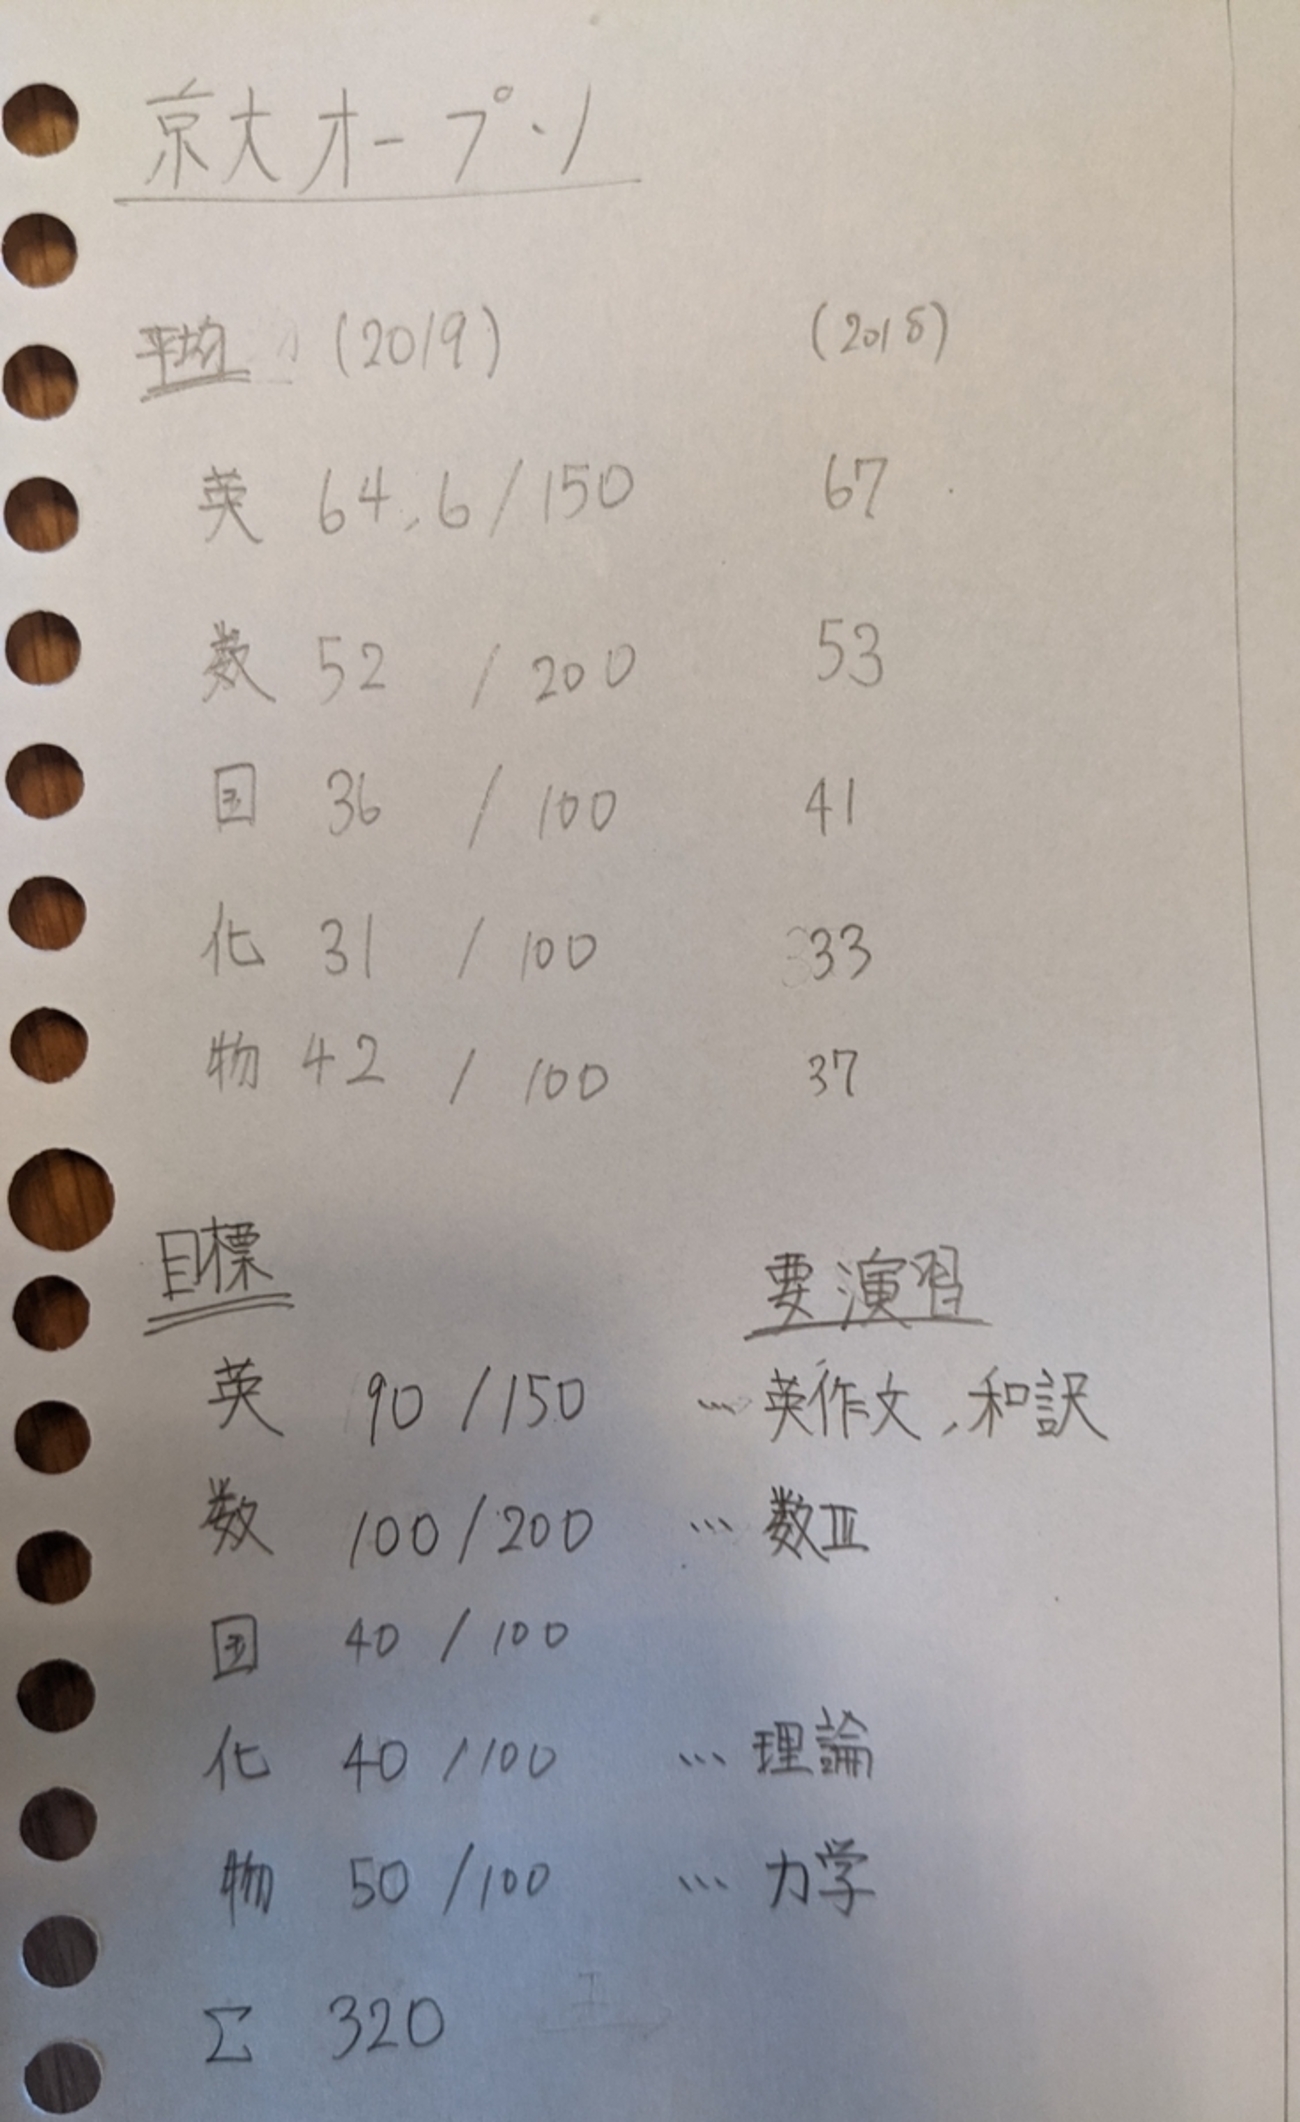 京大オープン
平均 (2019) (2018)
英 64.6/150 67
数 52 / 200 53
国 36 / 100 41
化 31 / 100 33
物 42 / 100 37
目標 要演習
英 90/150 … 英作文, 和訳
数 100/200 … 数Ⅲ
国 40/100
化 40/100 … 理論
物 50/100 … 力学
Σ 320